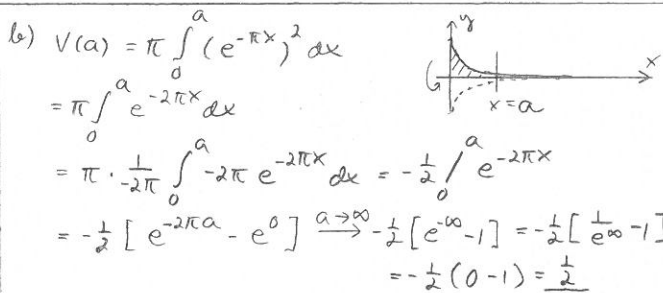 b) V(a) = π ∫₀ᵃ (e^{-πx})² dx
y
x
x=a
= π ∫₀ᵃ e^{-2πx} dx
= π · 1/(-2π) ∫₀ᵃ -2π e^{-2πx} dx = -1/2 /₀ᵃ e^{-2πx}
= -1/2 [ e^{-2πa} - e⁰ ] a→∞ → -1/2 [e^{-∞} - 1] = -1/2 [1/e^∞ - 1]
= -1/2 (0 - 1) = 1/2